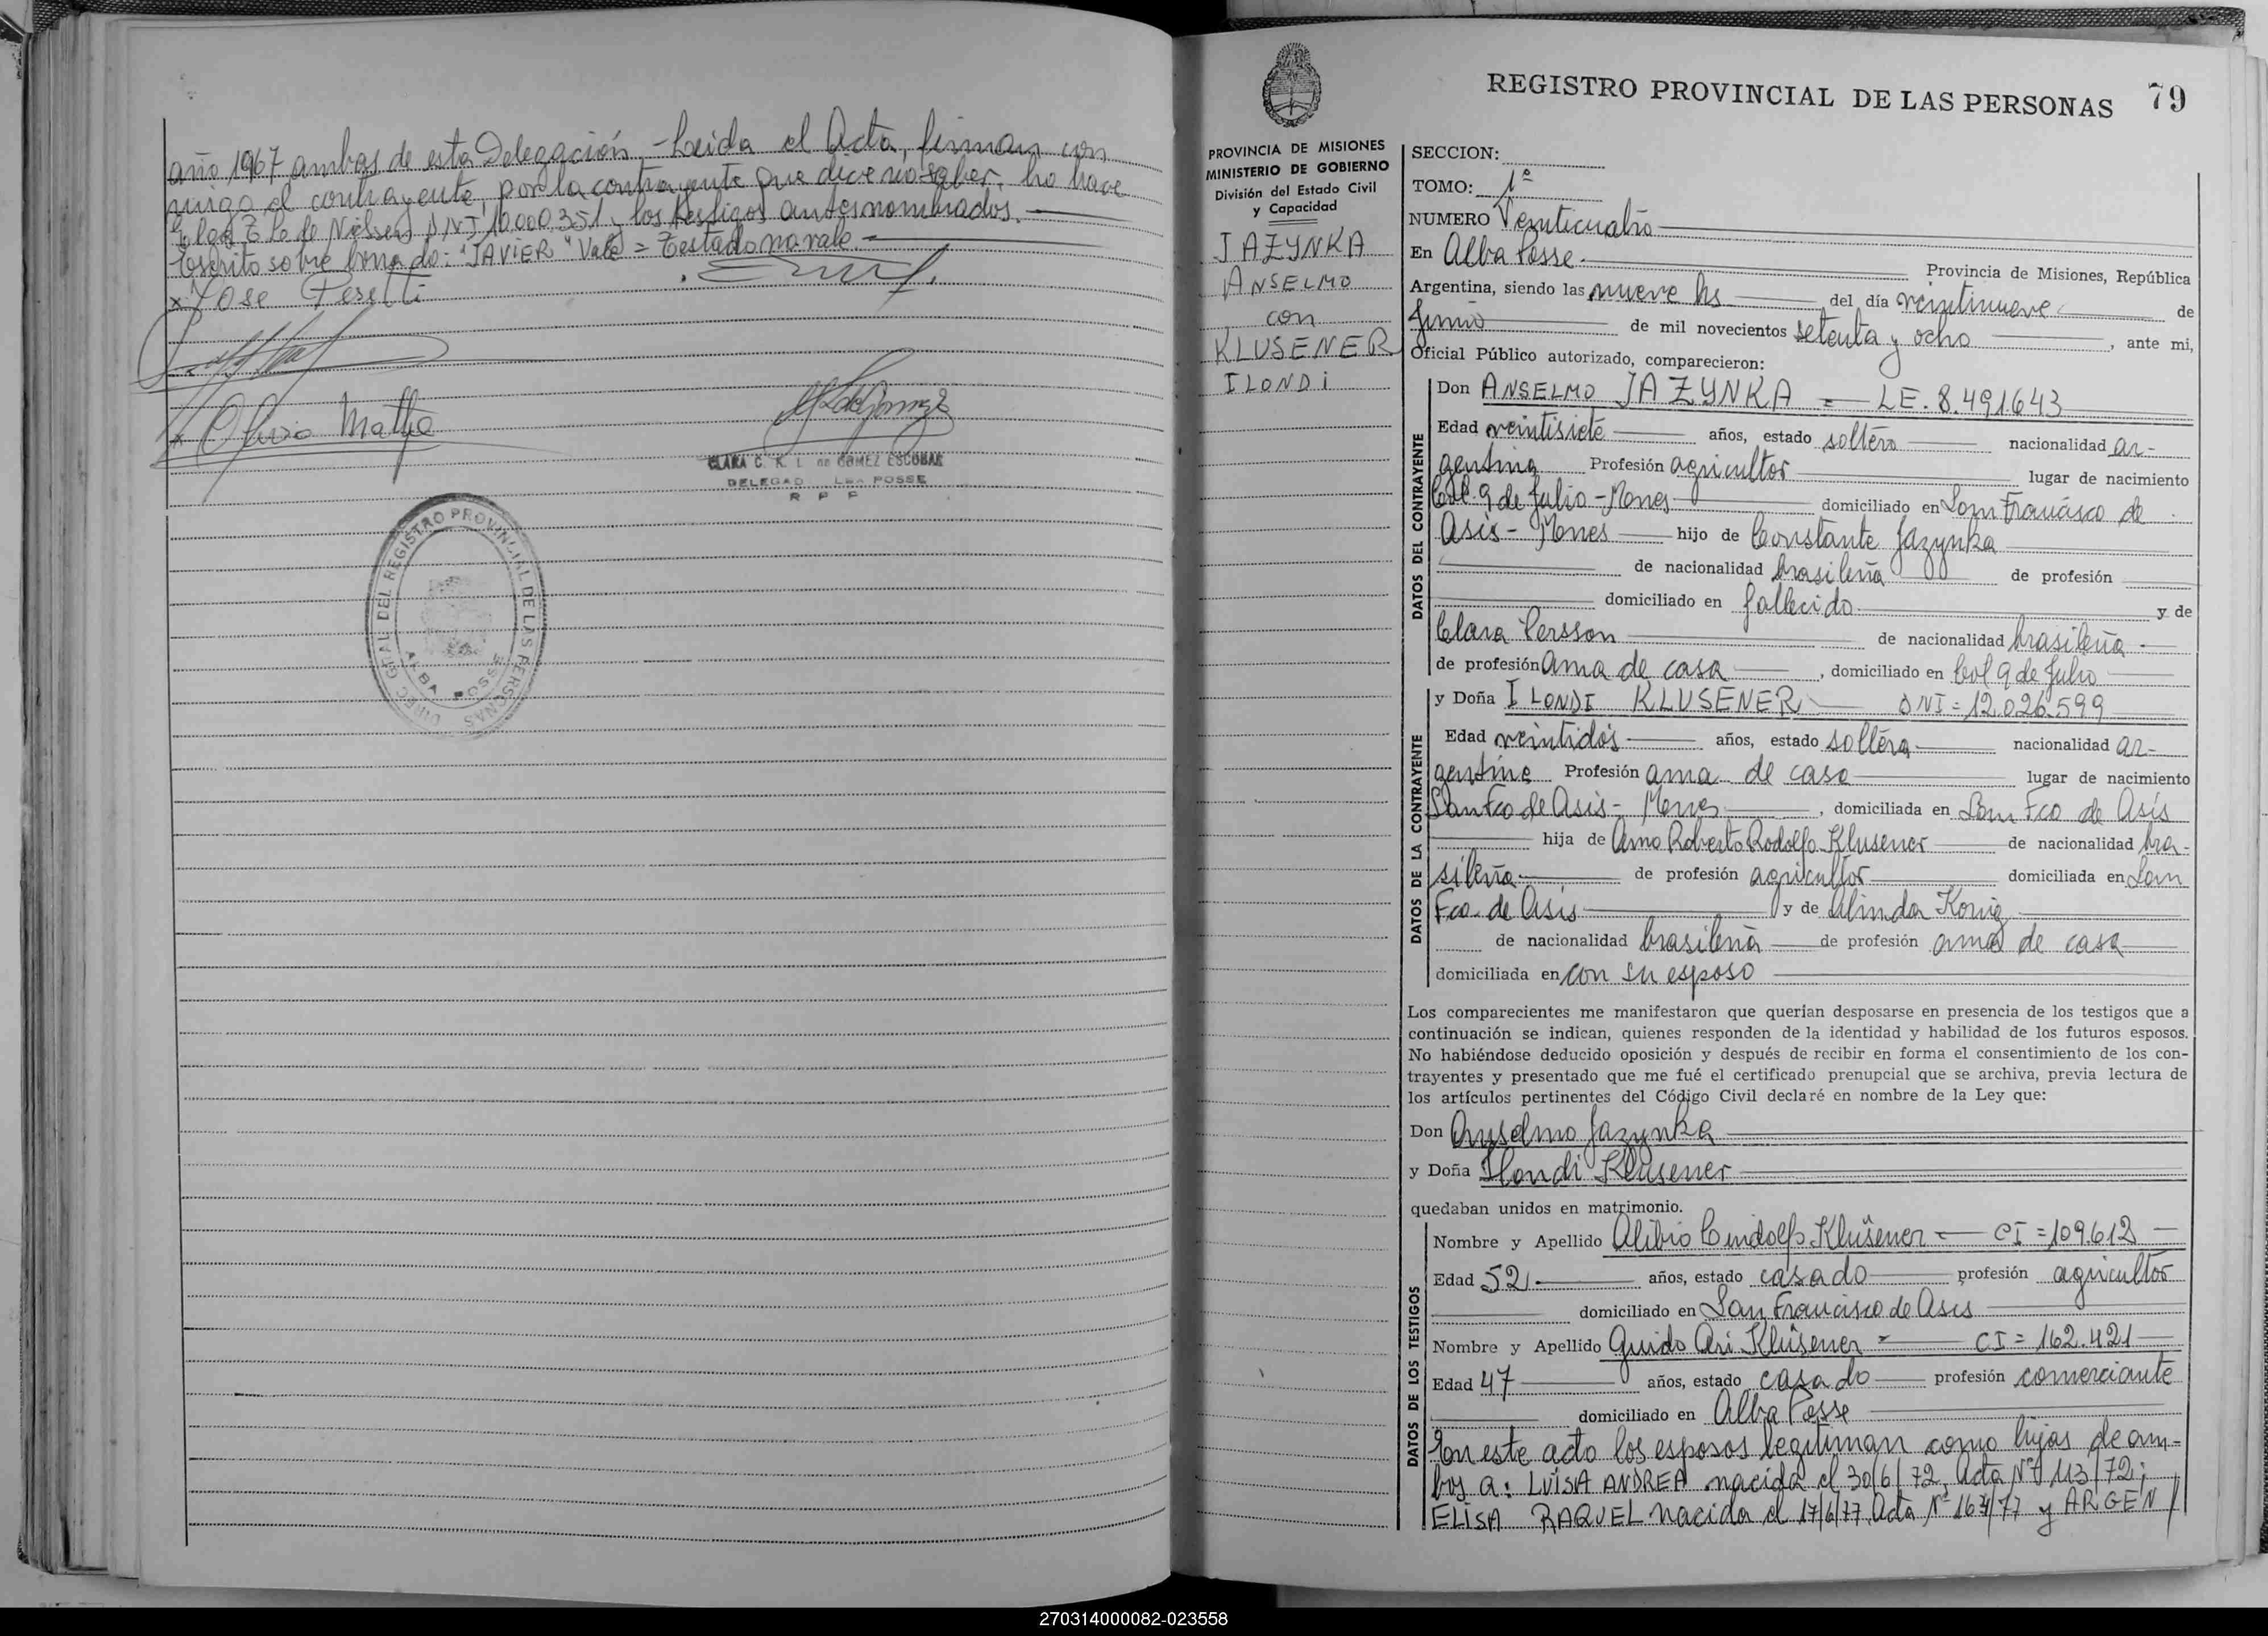 año 1967 ambas de esta Delegación.- Leida el Acta, firman con
migo el contrayente, por la contrayente que dice no saber, lo hace
de Nielsen DNI 10.000.351, los testigos antes nombrados.
Escrito sobre borrado: "JAVIER" Vale = Testado no vale.
x Jose
x Olivio Mathe
CLARA C. K. L. de GOMEZ ESCOBAR
DELEGAD LBA POSSE
R P P
DIREC GRAL DEL REGISTRO PROVINCIAL DE LAS PERSONAS
ALBA POSSE
REGISTRO PROVINCIAL DE LAS PERSONAS 79
PROVINCIA DE MISIONES
MINISTERIO DE GOBIERNO
División del Estado Civil
y Capacidad
JAZYNKA
ANSELMO
con
KLUSENER
ILONDI
SECCION:
TOMO: 1º
NUMERO Veinticuatro
En Alba Posse. Provincia de Misiones, República
Argentina, siendo las nueve hs del día veintinueve de
Junio de mil novecientos setenta y ocho, ante mi,
Oficial Público autorizado, comparecieron:
DATOS DEL CONTRAYENTE
Don ANSELMO JAZYNKA = LE. 8.491643
Edad veintisiete años, estado soltero nacionalidad ar-
gentina Profesión agricultor lugar de nacimiento
Col. 9 de Julio - Mnes domiciliado en San Francisco de
Asis - Mnes hijo de Constante Jazynka
de nacionalidad brasileña de profesión
domiciliado en fallecido y de
Clara Persson de nacionalidad brasileña
de profesión ama de casa, domiciliado en Col 9 de Julio
DATOS DE LA CONTRAYENTE
y Doña ILONDI KLUSENER DNI = 12.026.599
Edad veintidos años, estado soltera nacionalidad ar-
gentina Profesión ama de casa lugar de nacimiento
San Fco de Asis - Mnes, domiciliada en San Fco de Asis
hija de Arno Roberto Rodolfo Klusener de nacionalidad bra-
sileña de profesión agricultor domiciliada en San
Fco. de Asis y de Alinda Konig
de nacionalidad brasileña de profesión ama de casa
domiciliada en con su esposo
Los comparecientes me manifestaron que querían desposarse en presencia de los testigos que a
continuación se indican, quienes responden de la identidad y habilidad de los futuros esposos.
No habiéndose deducido oposición y después de recibir en forma el consentimiento de los con-
trayentes y presentado que me fué el certificado prenupcial que se archiva, previa lectura de
los artículos pertinentes del Código Civil declaré en nombre de la Ley que:
Don Anselmo Jazynka
y Doña Ilondi Klusener
quedaban unidos en matrimonio.
DATOS DE LOS TESTIGOS
Nombre y Apellido Alibio Lindolfo Klüsener - CI = 109.612
Edad 52 años, estado casado profesión agricultor
domiciliado en San Francisco de Asis
Nombre y Apellido Guido Ari Klüsener = CI = 162.421
Edad 47 años, estado casado profesión comerciante
domiciliado en Alba Posse
En este acto los esposos legitiman como hijas de am-
bos a: LUISA ANDREA nacida el 30/6/72, Acta Nº 113/72;
ELISA RAQUEL nacida el 17/6/77, Acta Nº 164/77 y ARGEN/
270314000082-023558